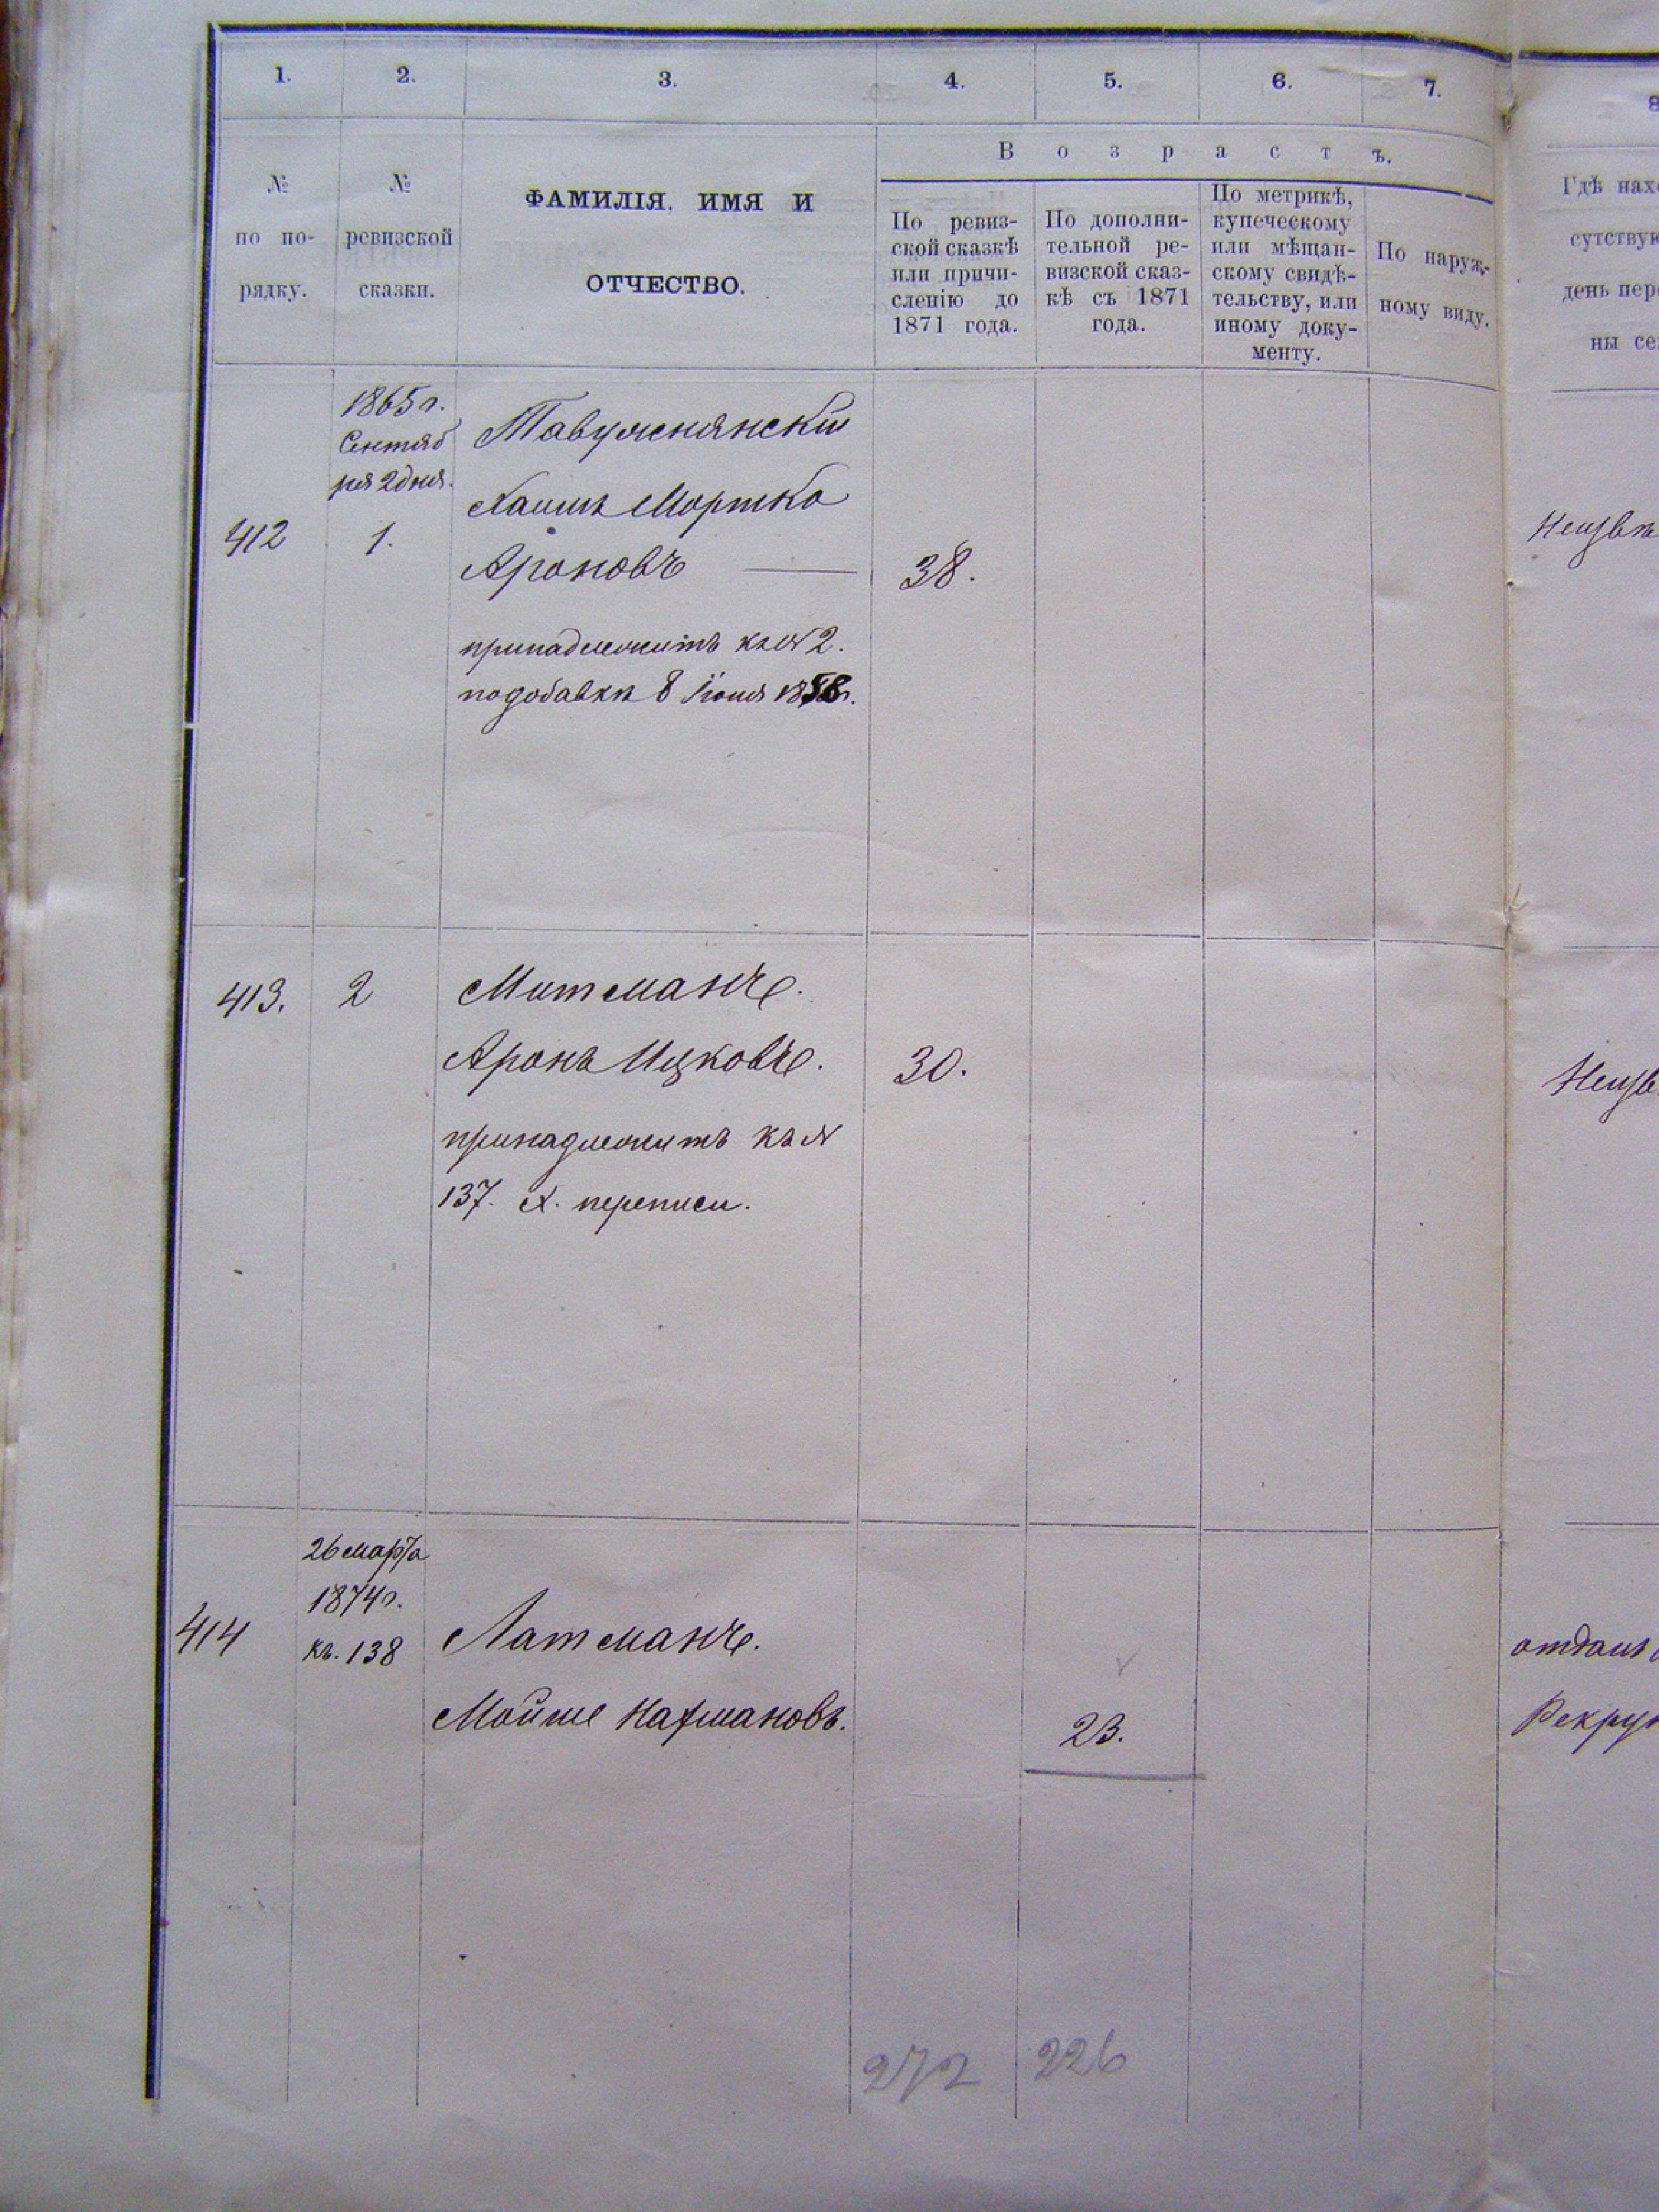 1. 2. 3. 4. 5. 6. 7. 8
В о з р а с т ъ.
№ по по- рядку.
№ ревизской сказки.
ФАМИЛІЯ, ИМЯ И
ОТЧЕСТВО.
По ревиз-
ской сказкѣ
или причи-
сленію до
1871 года.
По дополни-
тельной ре-
визской сказ-
кѣ съ 1871
года.
По метрикѣ,
купеческому
или мѣщан-
скому свидѣ-
тельству, или
иному доку-
менту.
По наруж-
ному виду.
Гдѣ нахо
сутствую
день пер
ны се
1865 г.
Сентяб
ря 2 дня.
412 1.
Тавужнянскій
Хаимъ Мортко
Ароновъ — 38.
принадлежитъ къ № 2.
подобавки 8 Іюня 1858 г.
Неизвѣ
413. 2 Митманъ.
Аронъ Ицковъ. 30.
принадлежитъ къ №
137. X. переписи.
Неизв
26 марта
1874 г.
414 къ. 138 Латманъ.
Мойше Нахмановъ. 23.
отданъ
Рекру
272 226